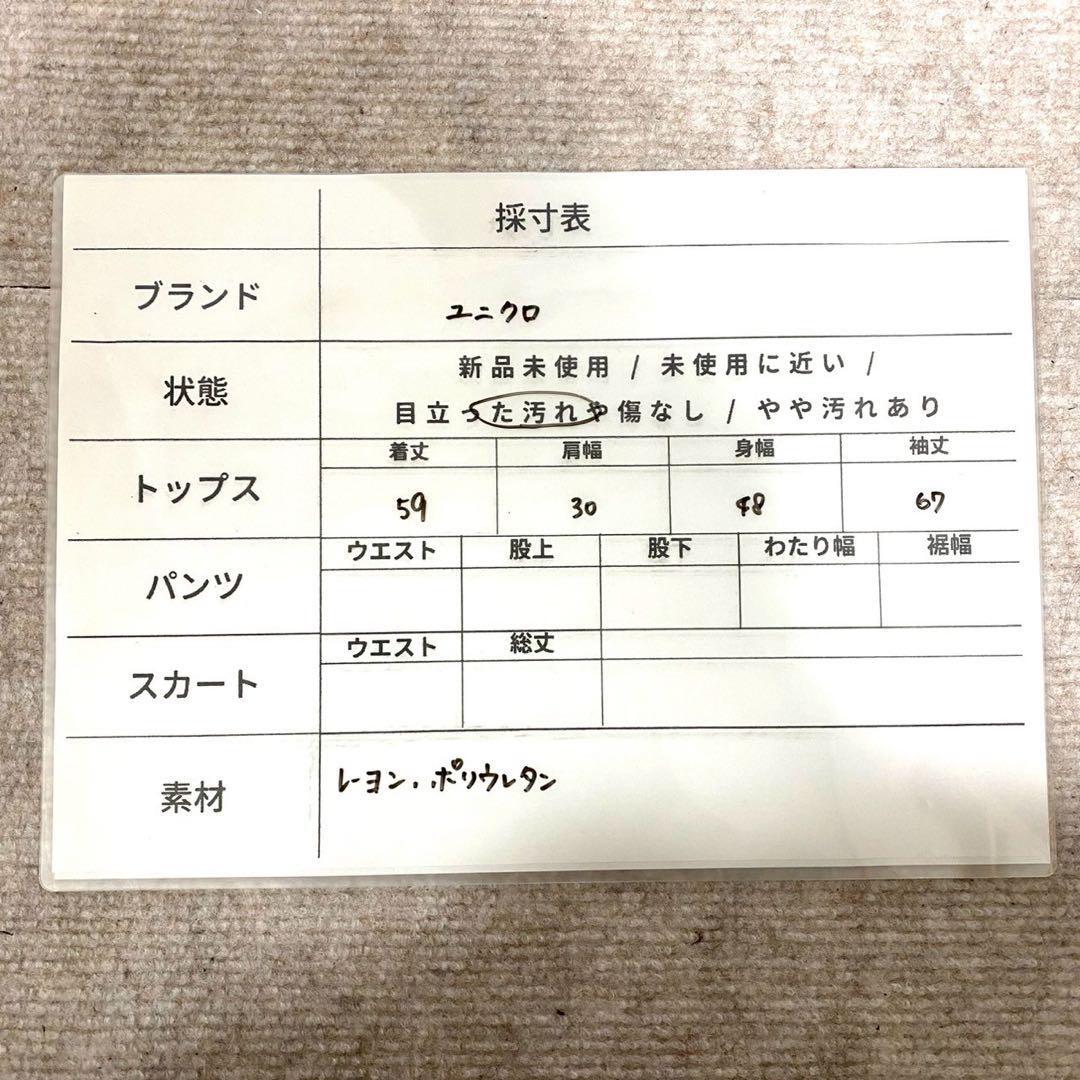 採寸表
ブランド
ユニクロ
状態
新品未使用 / 未使用に近い /
目立った汚れや傷なし / やや汚れあり
トップス
着丈 肩幅 身幅 袖丈
59 30 48 67
パンツ
ウエスト 股上 股下 わたり幅 裾幅
スカート
ウエスト 総丈
素材
レーヨン、ポリウレタン